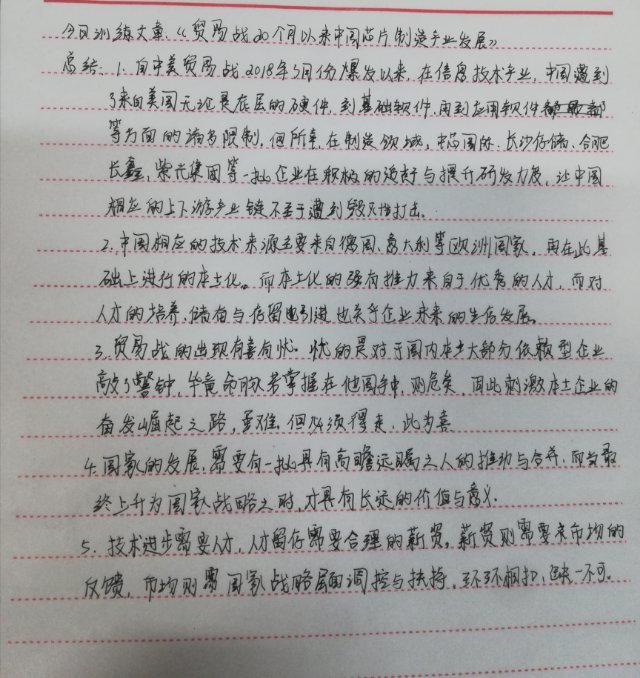 今日训练文章《贸易战20个月以来中国芯片制造产业发展》
总结：1.自中美贸易战2018年3月份爆发以来，在信息技术产业，中国遭到
了来自美国无论是底层的硬件，到基础软件，再到应用软件
等方面的诸多限制，但所幸，在制造领域，中芯国际、长沙存储、合肥
长鑫，紫光集团等一批企业在积极的改进与提升研发力度，让中国
相应的上下游产业链不至于遭到毁灭性打击。
2.中国相应的技术来源主要来自德国，意大利等欧洲国家，再在此基
础上进行的本土化。而本土化的强有推力来自于优秀的人才，而对
人才的培养，储备与存留引进也关乎企业未来的生存发展。
3.贸易战的出现有喜有忧。忧的是对于国内本土大部分依赖型企业
敲了警钟，毕竟命脉若掌握在他国手中，则危矣，因此刺激本土企业的
奋发崛起之路，虽难，但必须得走，此为喜
4.国家的发展，需要有一批具有高瞻远瞩之人的推动与合并，而当最
终上升为国家战略之时，才具有长远的价值与意义.
5.技术进步需要人才，人才留存需要合理的薪资，薪资则需要来市场的
反馈，市场则需国家战略层面调控与扶持，环环相扣，缺一不可。